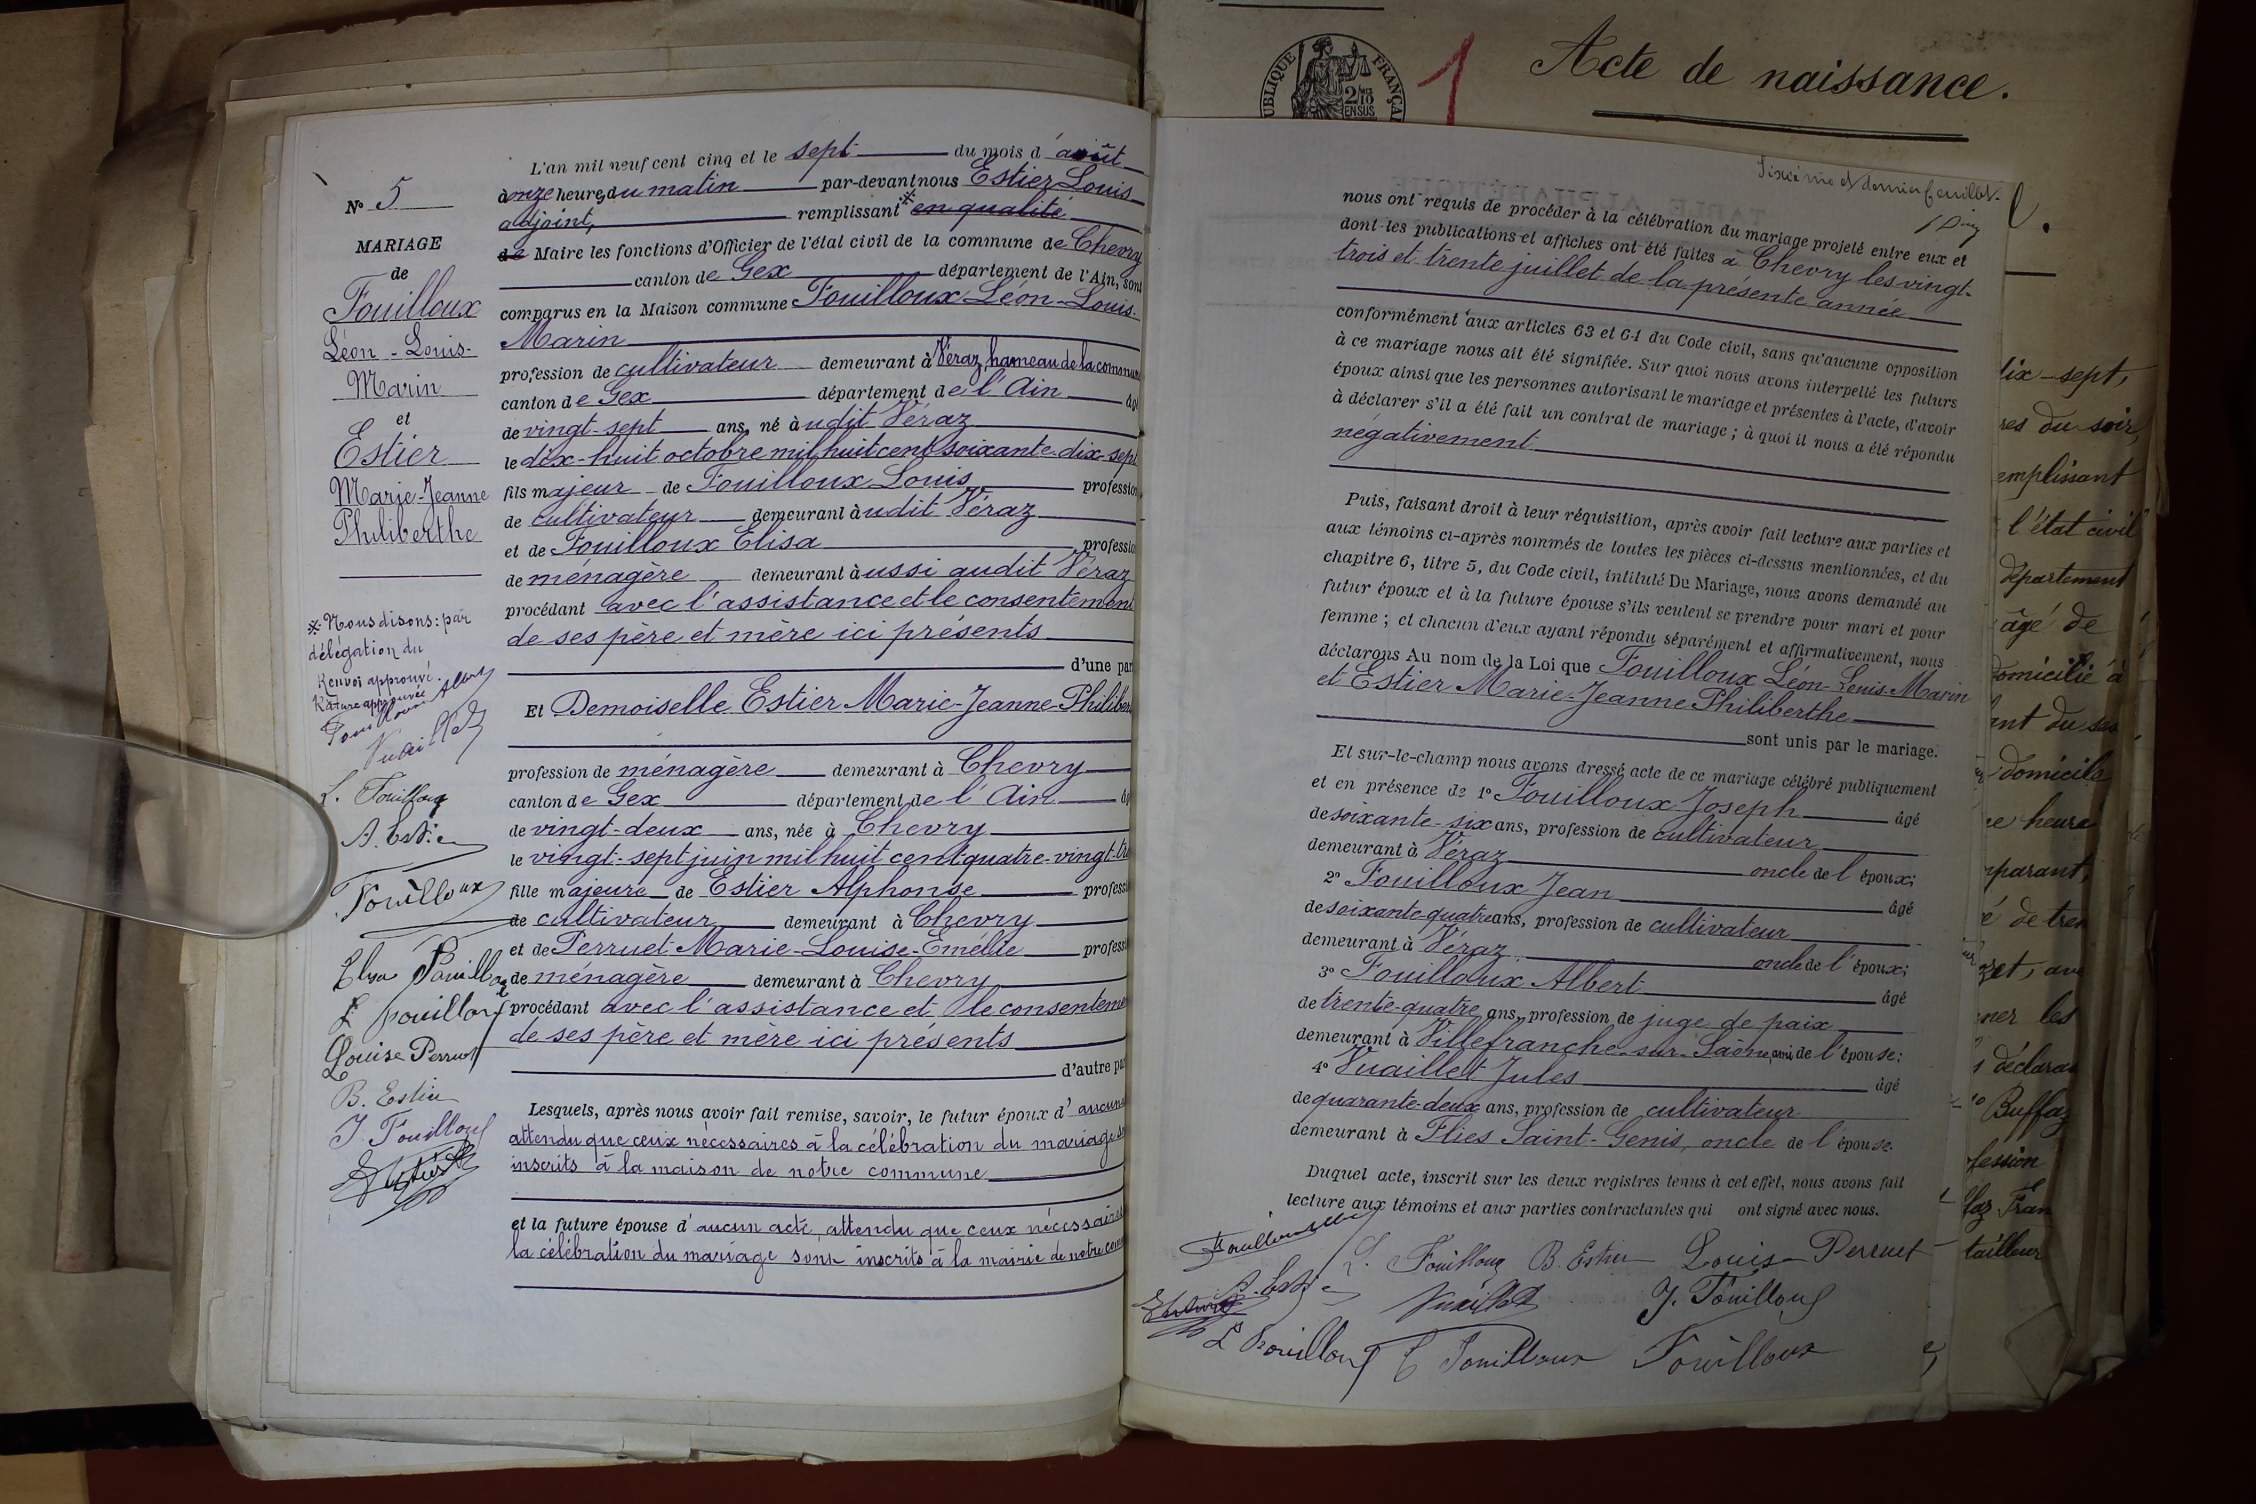 N° 5
MARIAGE
de
Fouilloux
Léon-Louis-
Marin
et
Estier
Marie-Jeanne
Philiberthe
※ Nous disons: par
délégation du
Renvoi approuvé.
Rature approuvée
Fouilloux Albert
Vuaillet
L. Fouilloux
A. Estier
Fouilloux
Elisa Fouilloux
L Fouilloux
Louise Perruet
B. Estier
J. Fouilloux
L'an mil neuf cent cinq et le sept du mois d'août
à onze heures du matin par-devant nous Estier Louis
adjoint, remplissant ※ en qualité
de Maire les fonctions d'Officier de l'état civil de la commune de Chevry
canton de Gex département de l'Ain, sont
comparus en la Maison commune Fouilloux Léon-Louis-
Marin
profession de cultivateur demeurant à Véraz, hameau de la commune
canton de Gex département de l'Ain âgé
de vingt-sept ans, né audit Véraz
le dix-huit octobre mil huit cent soixante-dix-sept
fils majeur de Fouilloux Louis profession
de cultivateur demeurant audit Véraz
et de Fouilloux Elisa profession
de ménagère demeurant aussi audit Véraz
procédant avec l'assistance et le consentement
de ses père et mère ici présents
d'une par
Et Demoiselle Estier Marie-Jeanne-Philiber
profession de ménagère demeurant à Chevry
canton de Gex département de l'Ain âg
de vingt-deux ans, née à Chevry
le vingt-sept juin mil huit cent quatre-vingt-tr
fille majeure de Estier Alphonse profess
de cultivateur demeurant à Chevry
et de Perruet Marie-Louise-Emélie profess
de ménagère demeurant à Chevry
procédant avec l'assistance et le consenteme
de ses père et mère ici présents
d'autre pa
Lesquels, après nous avoir fait remise, savoir, le futur époux d'aucun
attendu que ceux nécessaires à la célébration du mariage
inscrits à la maison de notre commune
et la future épouse d'aucun acte, attendu que ceux nécessaires
la célébration du mariage sont inscrits à la mairie de notre com
UBLIQUE FRANÇAI
ENSUS
1
Acte de naissance.
Sixième et dernier feuillet.
nous ont requis de procéder à la célébration du mariage projeté entre eux et
dont les publications et affiches ont été faites à Chevry les vingt-
trois et trente juillet de la présente année
conformément aux articles 63 et 64 du Code civil, sans qu'aucune opposition
à ce mariage nous ait été signifiée. Sur quoi nous avons interpellé les futurs
époux ainsi que les personnes autorisant le mariage et présentes à l'acte, d'avoir
à déclarer s'il a été fait un contrat de mariage; à quoi il nous a été répondu
négativement
Puis, faisant droit à leur réquisition, après avoir fait lecture aux parties et
aux témoins ci-après nommés de toutes les pièces ci-dessus mentionnées, et du
chapitre 6, titre 5, du Code civil, intitulé Du Mariage, nous avons demandé au
futur époux et à la future épouse s'ils veulent se prendre pour mari et pour
femme; et chacun d'eux ayant répondu séparément et affirmativement, nous
déclarons Au nom de la Loi que Fouilloux Léon-Louis-Marin
et Estier Marie-Jeanne Philiberthe
sont unis par le mariage.
Et sur-le-champ nous avons dressé acte de ce mariage célébré publiquement
et en présence de 1° Fouilloux Joseph âgé
de soixante-six ans, profession de cultivateur
demeurant à Véraz oncle de l'époux;
2° Fouilloux Jean âgé
de soixante-quatre ans, profession de cultivateur
demeurant à Véraz oncle de l'époux;
3° Fouilloux Albert âgé
de trente-quatre ans, profession de juge de paix
demeurant à Villefranche-sur-Saône, ami de l'épouse;
4° Vuaillet Jules âgé
de quarante-deux ans, profession de cultivateur
demeurant à Flies Saint-Genis, oncle de l'épouse.
Duquel acte, inscrit sur les deux registres tenus à cet effet, nous avons fait
lecture aux témoins et aux parties contractantes qui ont signé avec nous.
L. Fouilloux B. Estier Louise Perruet
A. Estier Vuaillet J. Fouilloux
L Fouilloux E Fouilloux Fouilloux
dix-sept,
res du soir,
emplissant
l'état civil
département
âgé de
domicilié à
domicile
heure
mparant,
é de tren
ner les
déclara
Buffaz
fession
Fran
tailleur